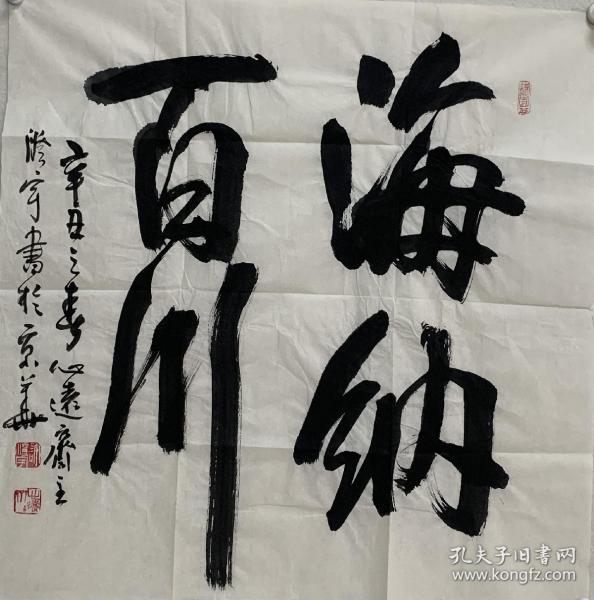 海纳
百川
辛丑之春心远斋主
澄宇书於京华
孔夫子旧书网
www.kongfz.com